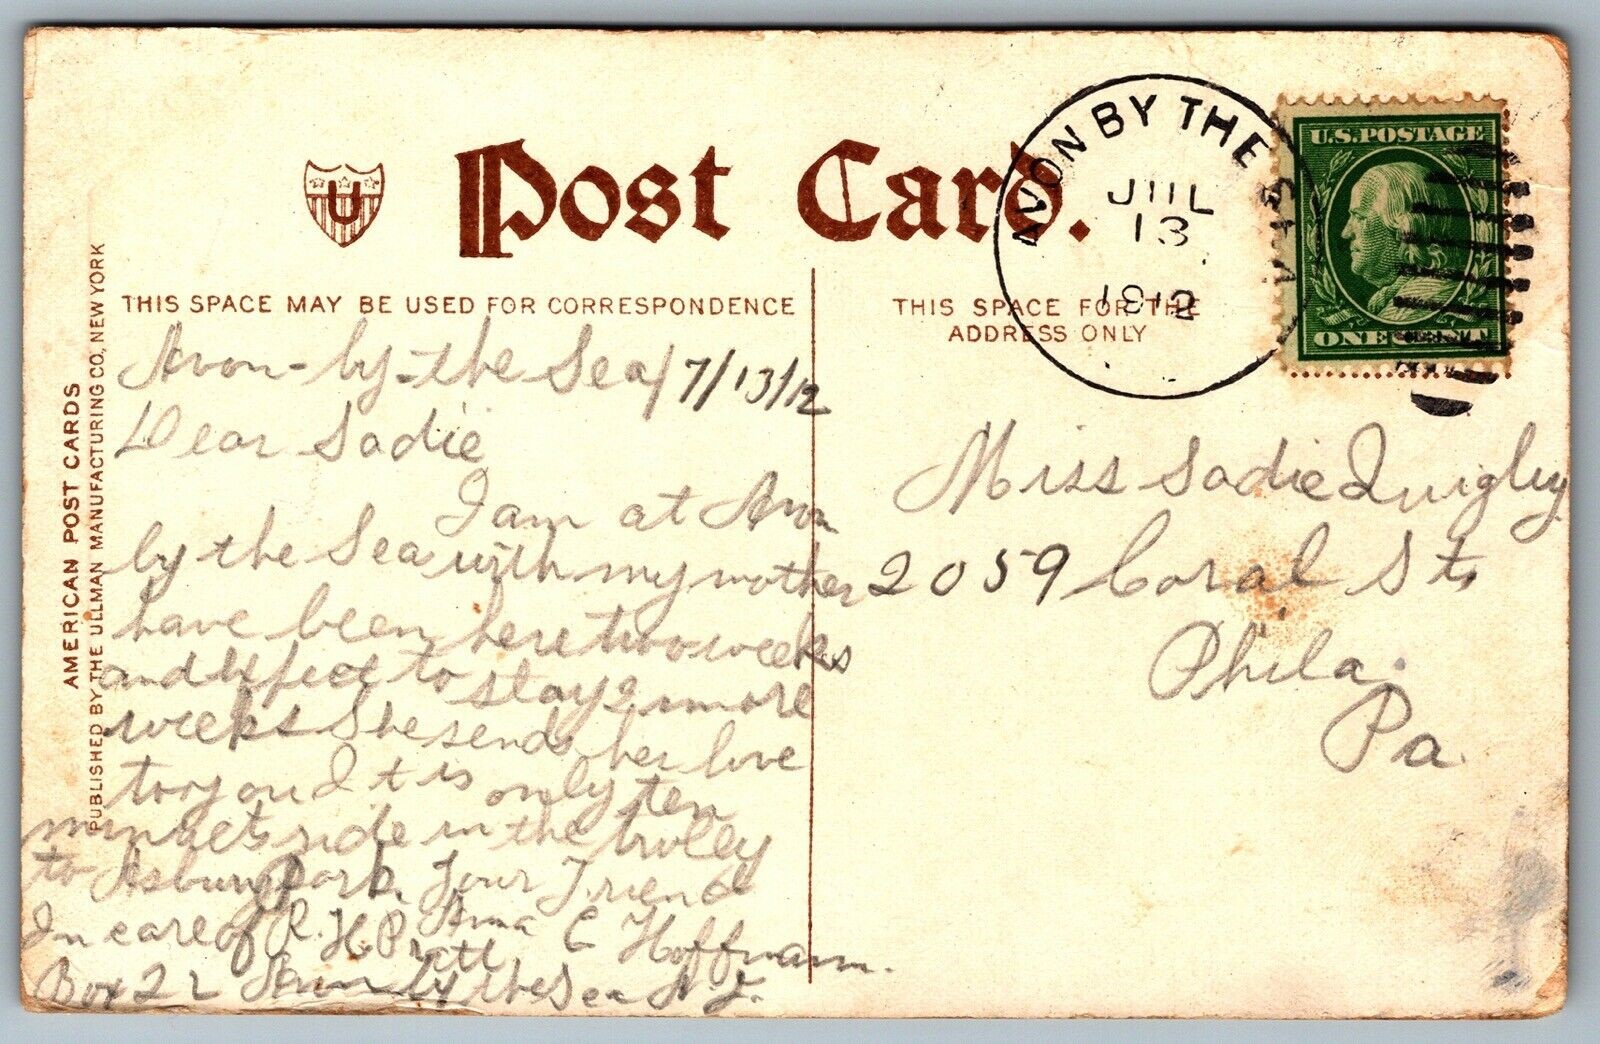 Post Card.
U
THIS SPACE MAY BE USED FOR CORRESPONDENCE
THIS SPACE FOR THE
ADDRESS ONLY
AMERICAN POST CARDS
PUBLISHED BY THE ULLMAN MANUFACTURING CO, NEW YORK
AVON BY THE
JUL
13
1912
U.S. POSTAGE
ONE CENT
Avon-by-the Sea/7/13/12
Dear Sadie
I am at Avon
by the Sea with my mother
have been here two weeks
and expect to stay 2 more
weeks She sends her love
to you It is only ten
minuets ride in the trolley
to Asbury Park. Your Friend
Anna C Hoffmann.
In care of R. H. Pratt
Box 22 Avon by the Sea N. J.
Miss Sadie Quigley
2059 Coral St,
Phila.
Pa.